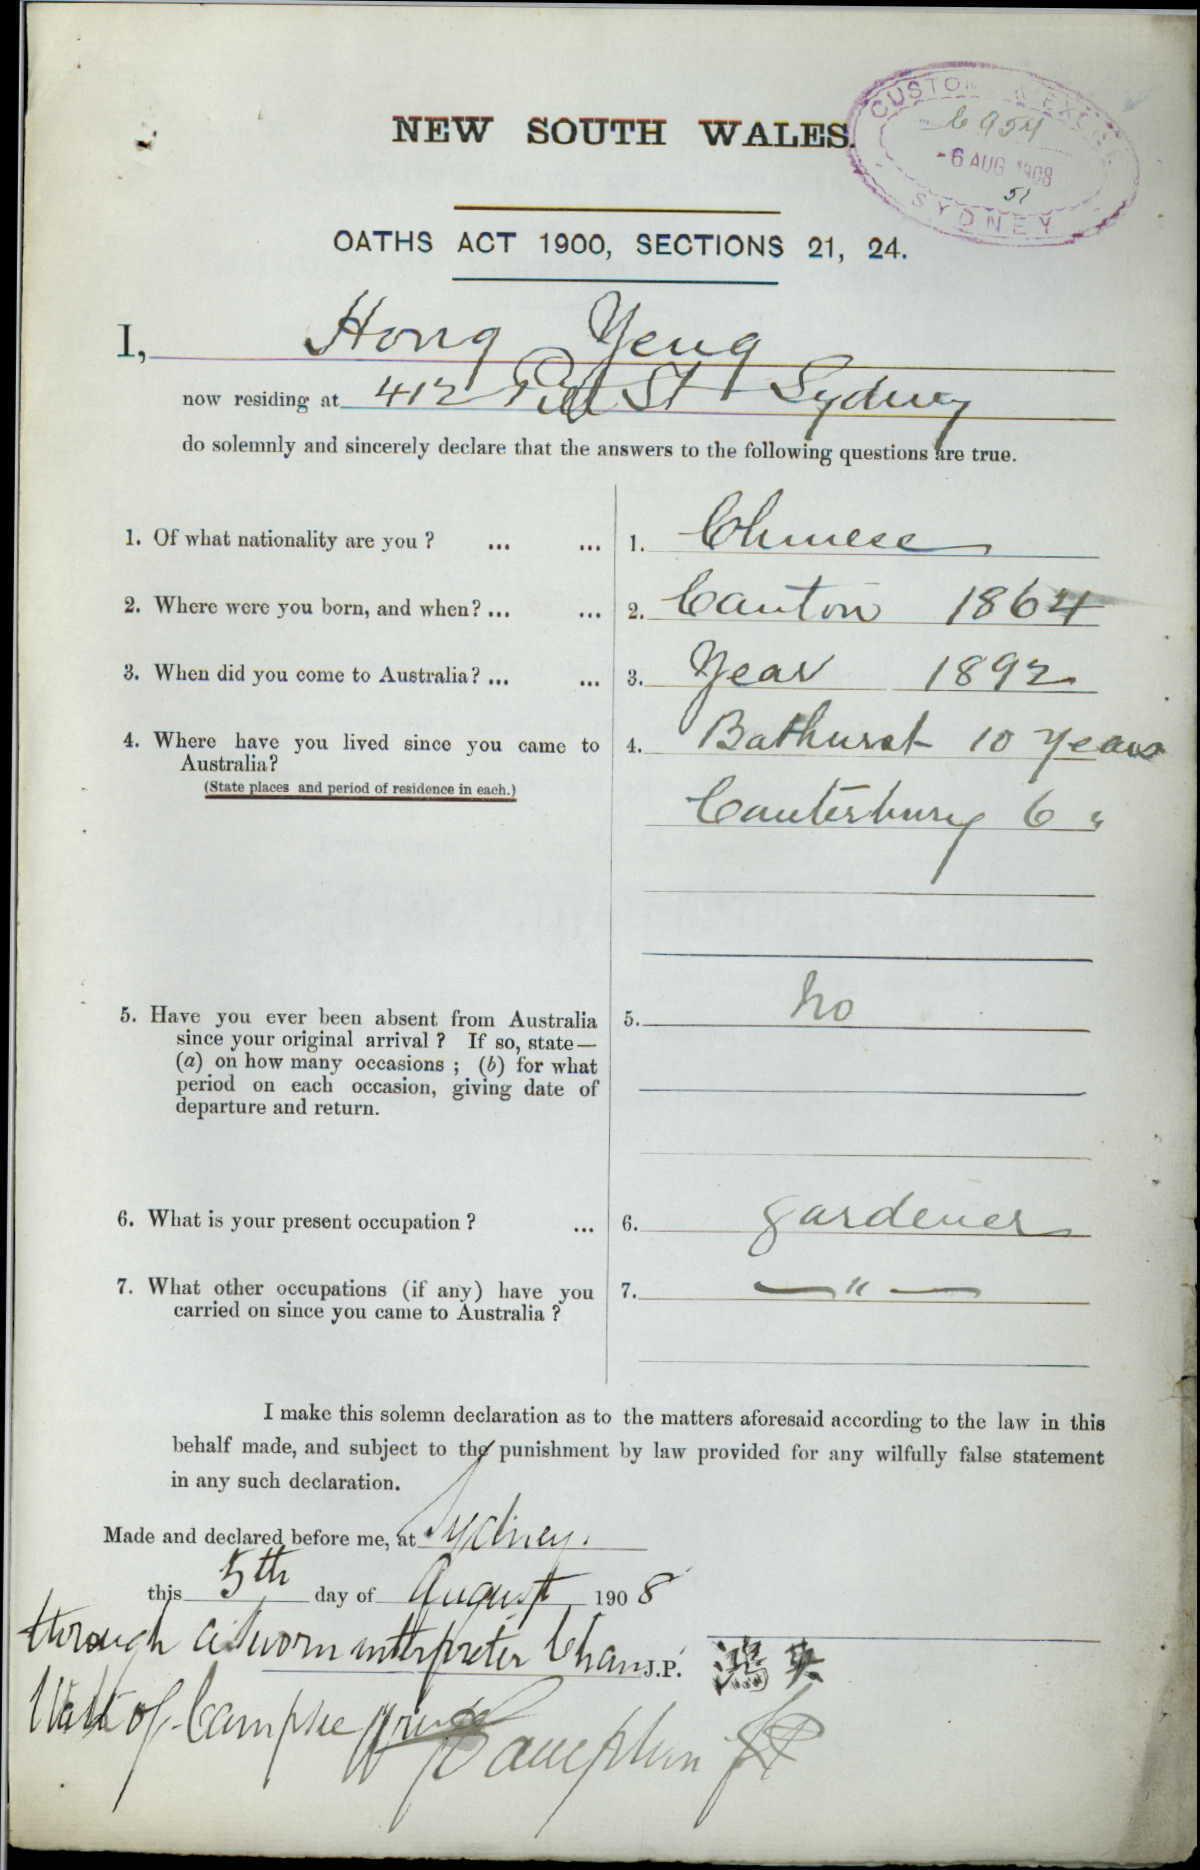 CUSTOMS & EXCISE
6 AUG 1908
51
SYDNEY
NEW SOUTH WALES.
OATHS ACT 1900, SECTIONS 21, 24.
I, Hong Yeng
now residing at 412 Pitt St Sydney
do solemnly and sincerely declare that the answers to the following questions are true.
1. Of what nationality are you ? ... ... 1. Chinese
2. Where were you born, and when? ... ... 2. Canton 1864
3. When did you come to Australia? ... ... 3. Year 1892
4. Where have you lived since you came to 4. Bathurst 10 years
Australia?
(State places and period of residence in each.)
Canterbury 6 "
5. Have you ever been absent from Australia 5. no
since your original arrival ? If so, state—
(a) on how many occasions ; (b) for what
period on each occasion, giving date of
departure and return.
6. What is your present occupation ? ... 6. gardener
7. What other occupations (if any) have you 7. — " —
carried on since you came to Australia ?
I make this solemn declaration as to the matters aforesaid according to the law in this
behalf made, and subject to the punishment by law provided for any wilfully false statement
in any such declaration.
Made and declared before me, at Sydney.
this 5th day of August 1908
through a sworn interpreter Chan J.P.
of Campsie
JP